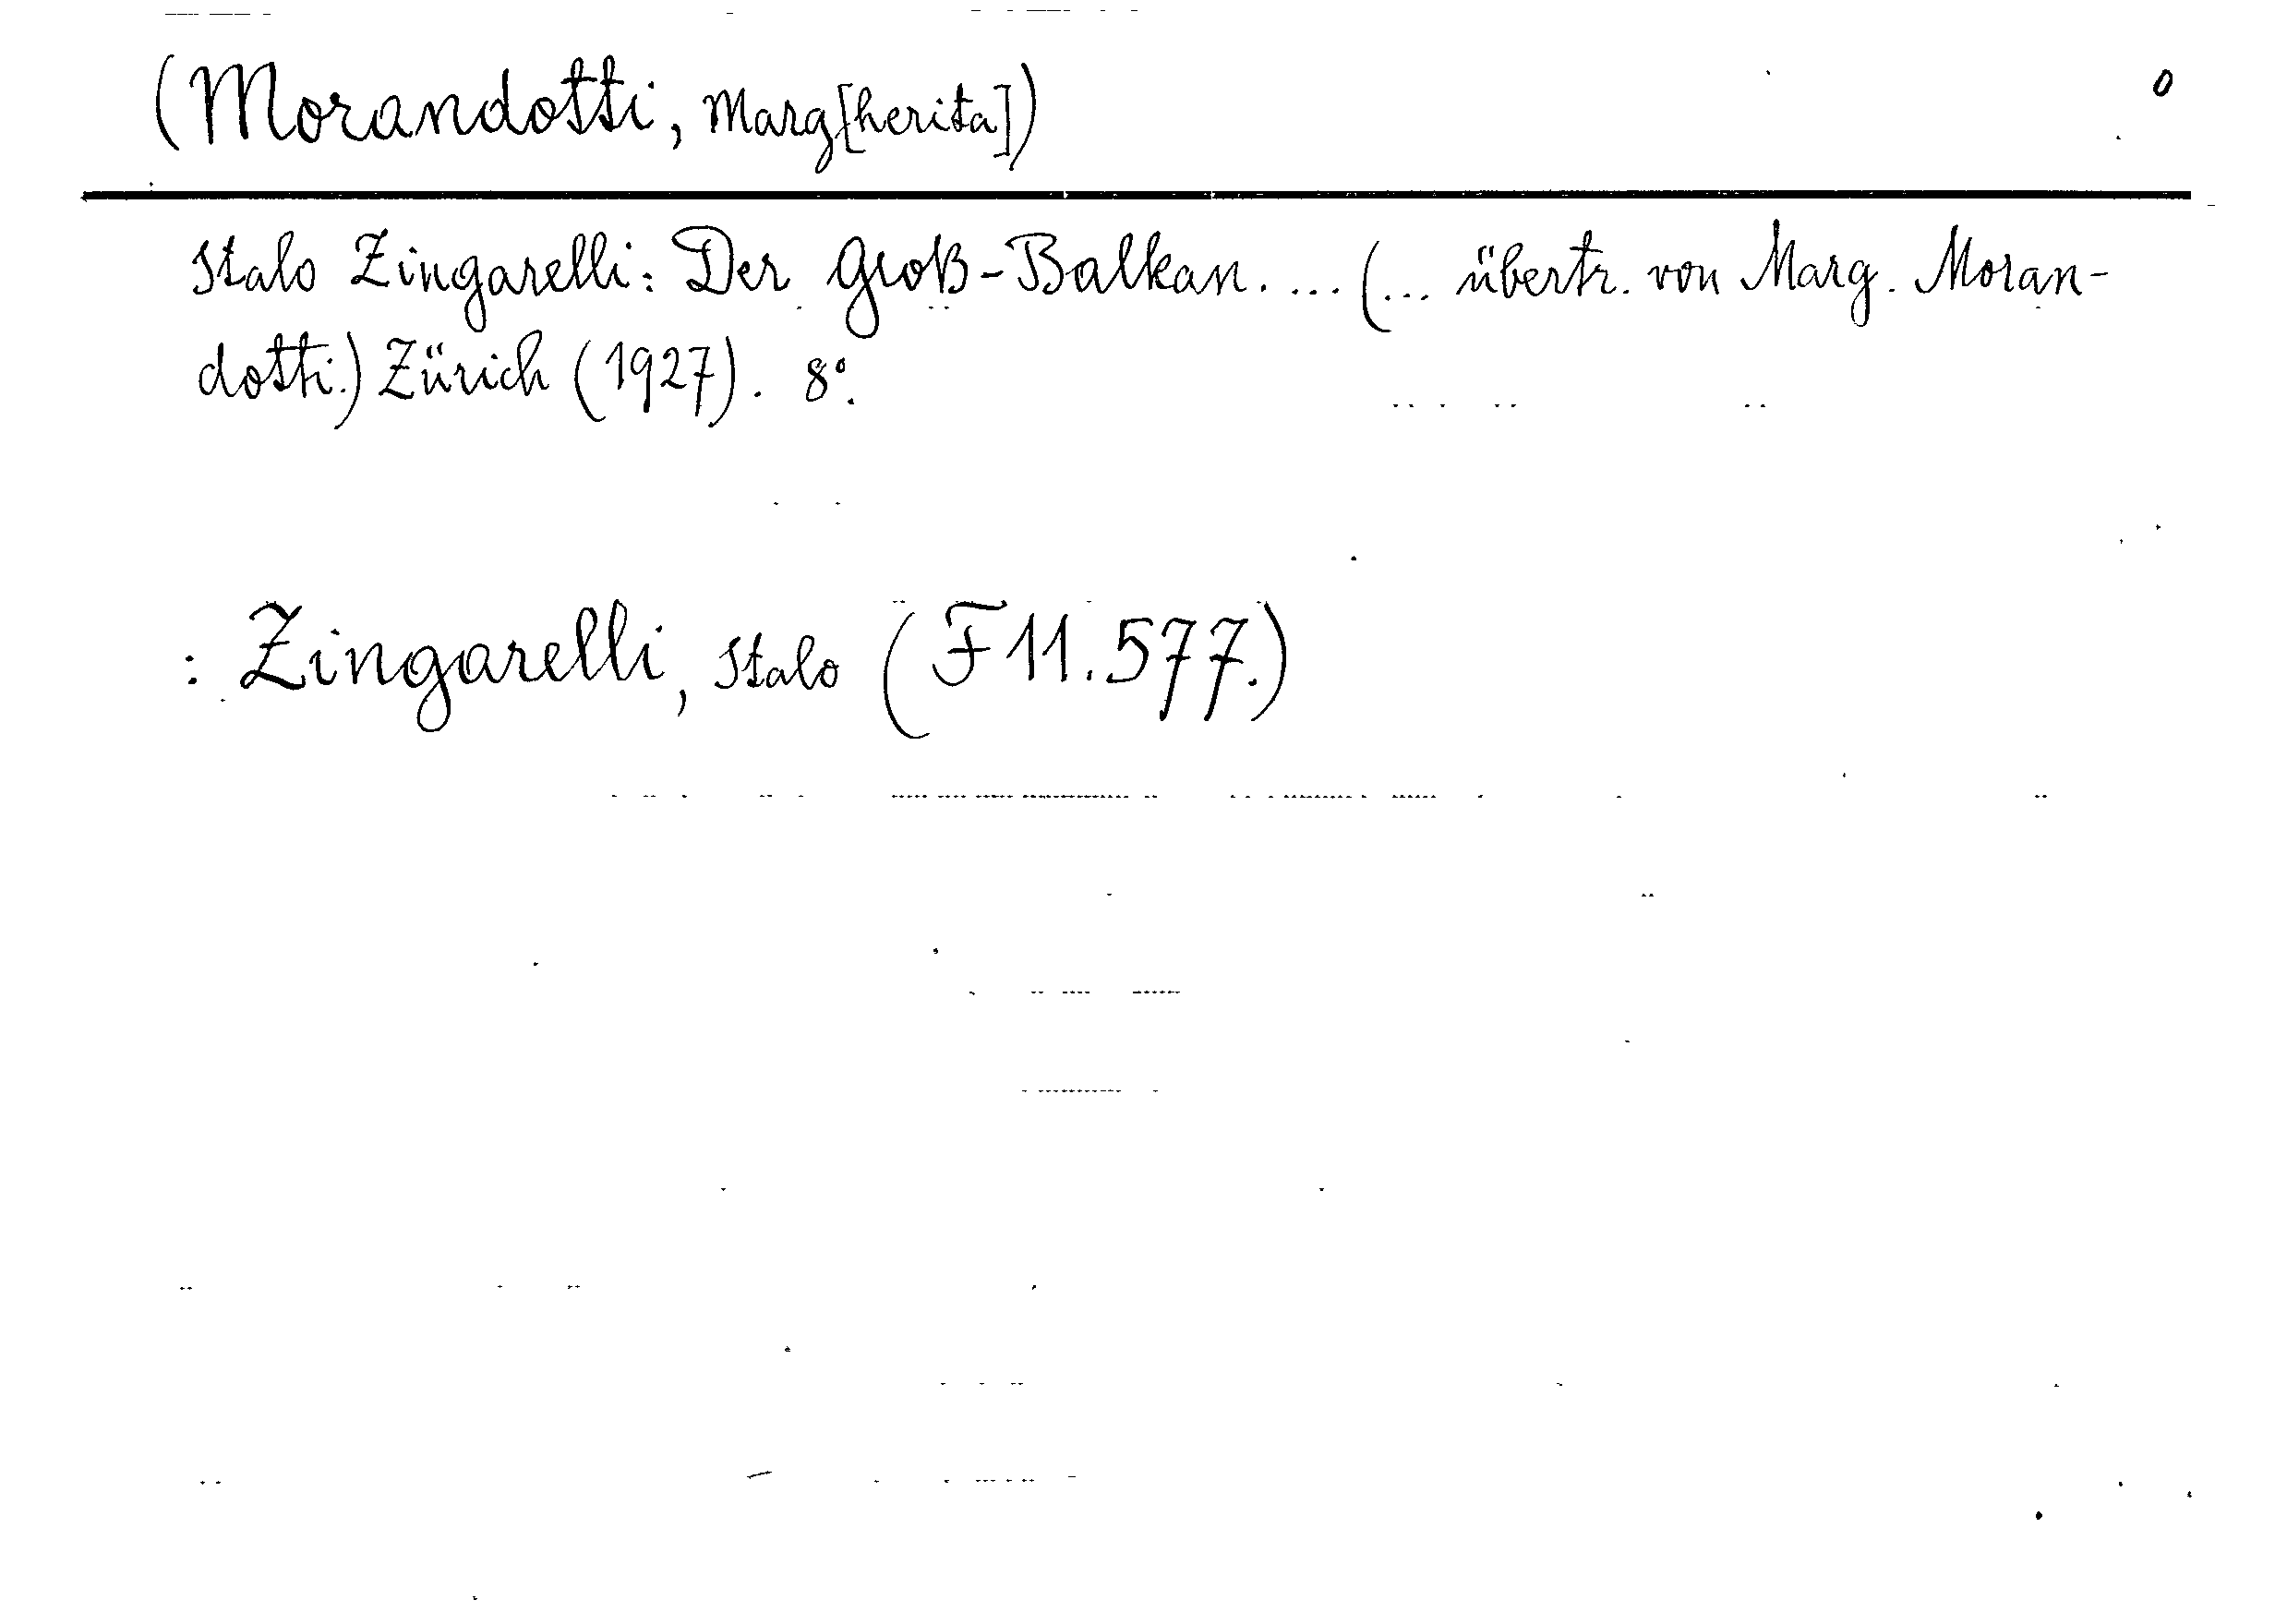 (Morandotti, Marg[herita]) 0
Italo Zingarelli: Der Groß-Balkan. ... (... übertr. von Marg. Moran-
dotti.) Zürich (1927). 8°.
: Zingarelli, Italo (F 11.577.)